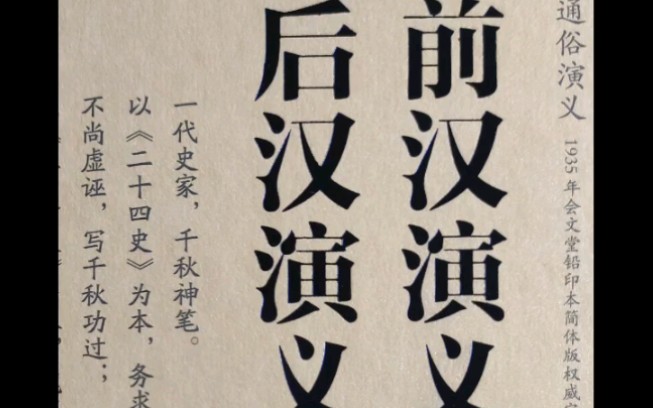 通俗演义
1935年会文堂铅印本简体版权威
前汉演义
后汉演义
一代史家，千秋神笔。
以《二十四史》为本，务求
不尚虚诬，写千秋功过；